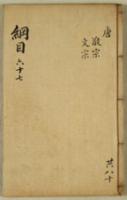 唐
敬宗
文宗
綱目
六十七
共八十